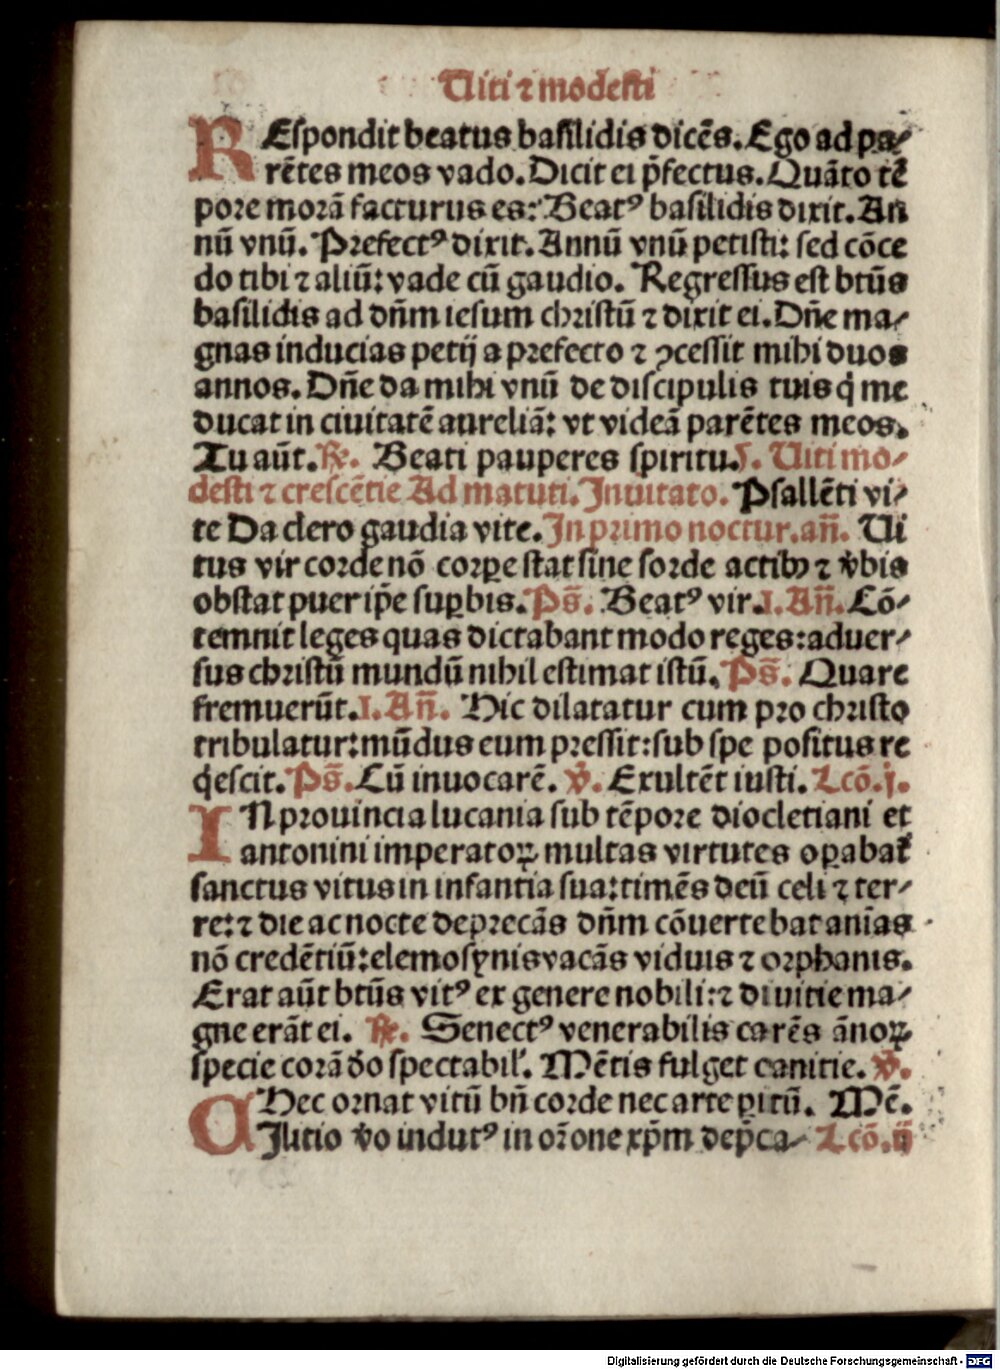 Uiti ⁊ modesti
REspondit beatus basilidis dicēs. Ego ad pa⸗
rētes meos vado. Dicit ei p̄fectus. Quāto tē
pore morā facturus es: Beatꝰ basilidis dixit. An
nū vnū. Prefectꝰ dixit. Annū vnū petisti: sed cōce
do tibi ⁊ aliū: vade cū gaudio. Regressus est btūs
basilidis ad dn̄m iesum christū ⁊ dixit ei. Dn̄e ma⸗
gnas inducias petij a prefecto ⁊ ꝯcessit mihi duos
annos. Dn̄e da mihi vnū de discipulis tuis q̇ me
ducat in ciuitatē aureliā: vt videā parētes meos.
Tu aūt. ℟. Beati pauperes spiritu. ſ. Uiti mo⸗
desti ⁊ crescētie Ad matuti. Inuitato. Psallēti vi⸗
te Da clero gaudia vite. In primo noctur. an̄. Ui
tus vir corde nō corꝑe stat sine sorde actibꝫ ⁊ v̄bis
obstat puer ip̄e suꝑbis. Ps̄. Beatꝰ vir. i. An̄. Cō⸗
temnit leges quas dictabant modo reges: aduer⸗
sus christū mundū nihil estimat istū. Ps̄. Quare
fremuerūt. i. An̄. Hic dilatatur cum pro christo
tribulatur: mūdus eum pressit: sub spe positus re
q̇escit. Ps̄. Cū inuocarē. ℣. Exultēt iusti. Lcō. j.
IN prouincia lucania sub tēpore diocletiani et
antonini imperatoꝝ multas virtutes oꝑabat̄
sanctus vitus in infantia sua: timēs deū celi ⁊ ter⸗
re: ⁊ die ac nocte deprecās dn̄m cōuertebat anīas
nō credētiū: elemosynis vacās viduis ⁊ orphanis.
Erat aūt btūs vitꝰ ex genere nobili: ⁊ diuitie ma⸗
gne erāt ei. ℟. Senectꝰ venerabilis carēs ānoꝝ
specie corā do spectabil'. Mētis fulget canitie. ℣.
Hec ornat vitū bn̄ corde nec arte ꝑitū. Mē.
AIutio v̄o indutꝰ in or̄one xp̄m dep̄ca⸗ Lcō. ij
Digitalisierung gefördert durch die Deutsche Forschungsgemeinschaft - DFG